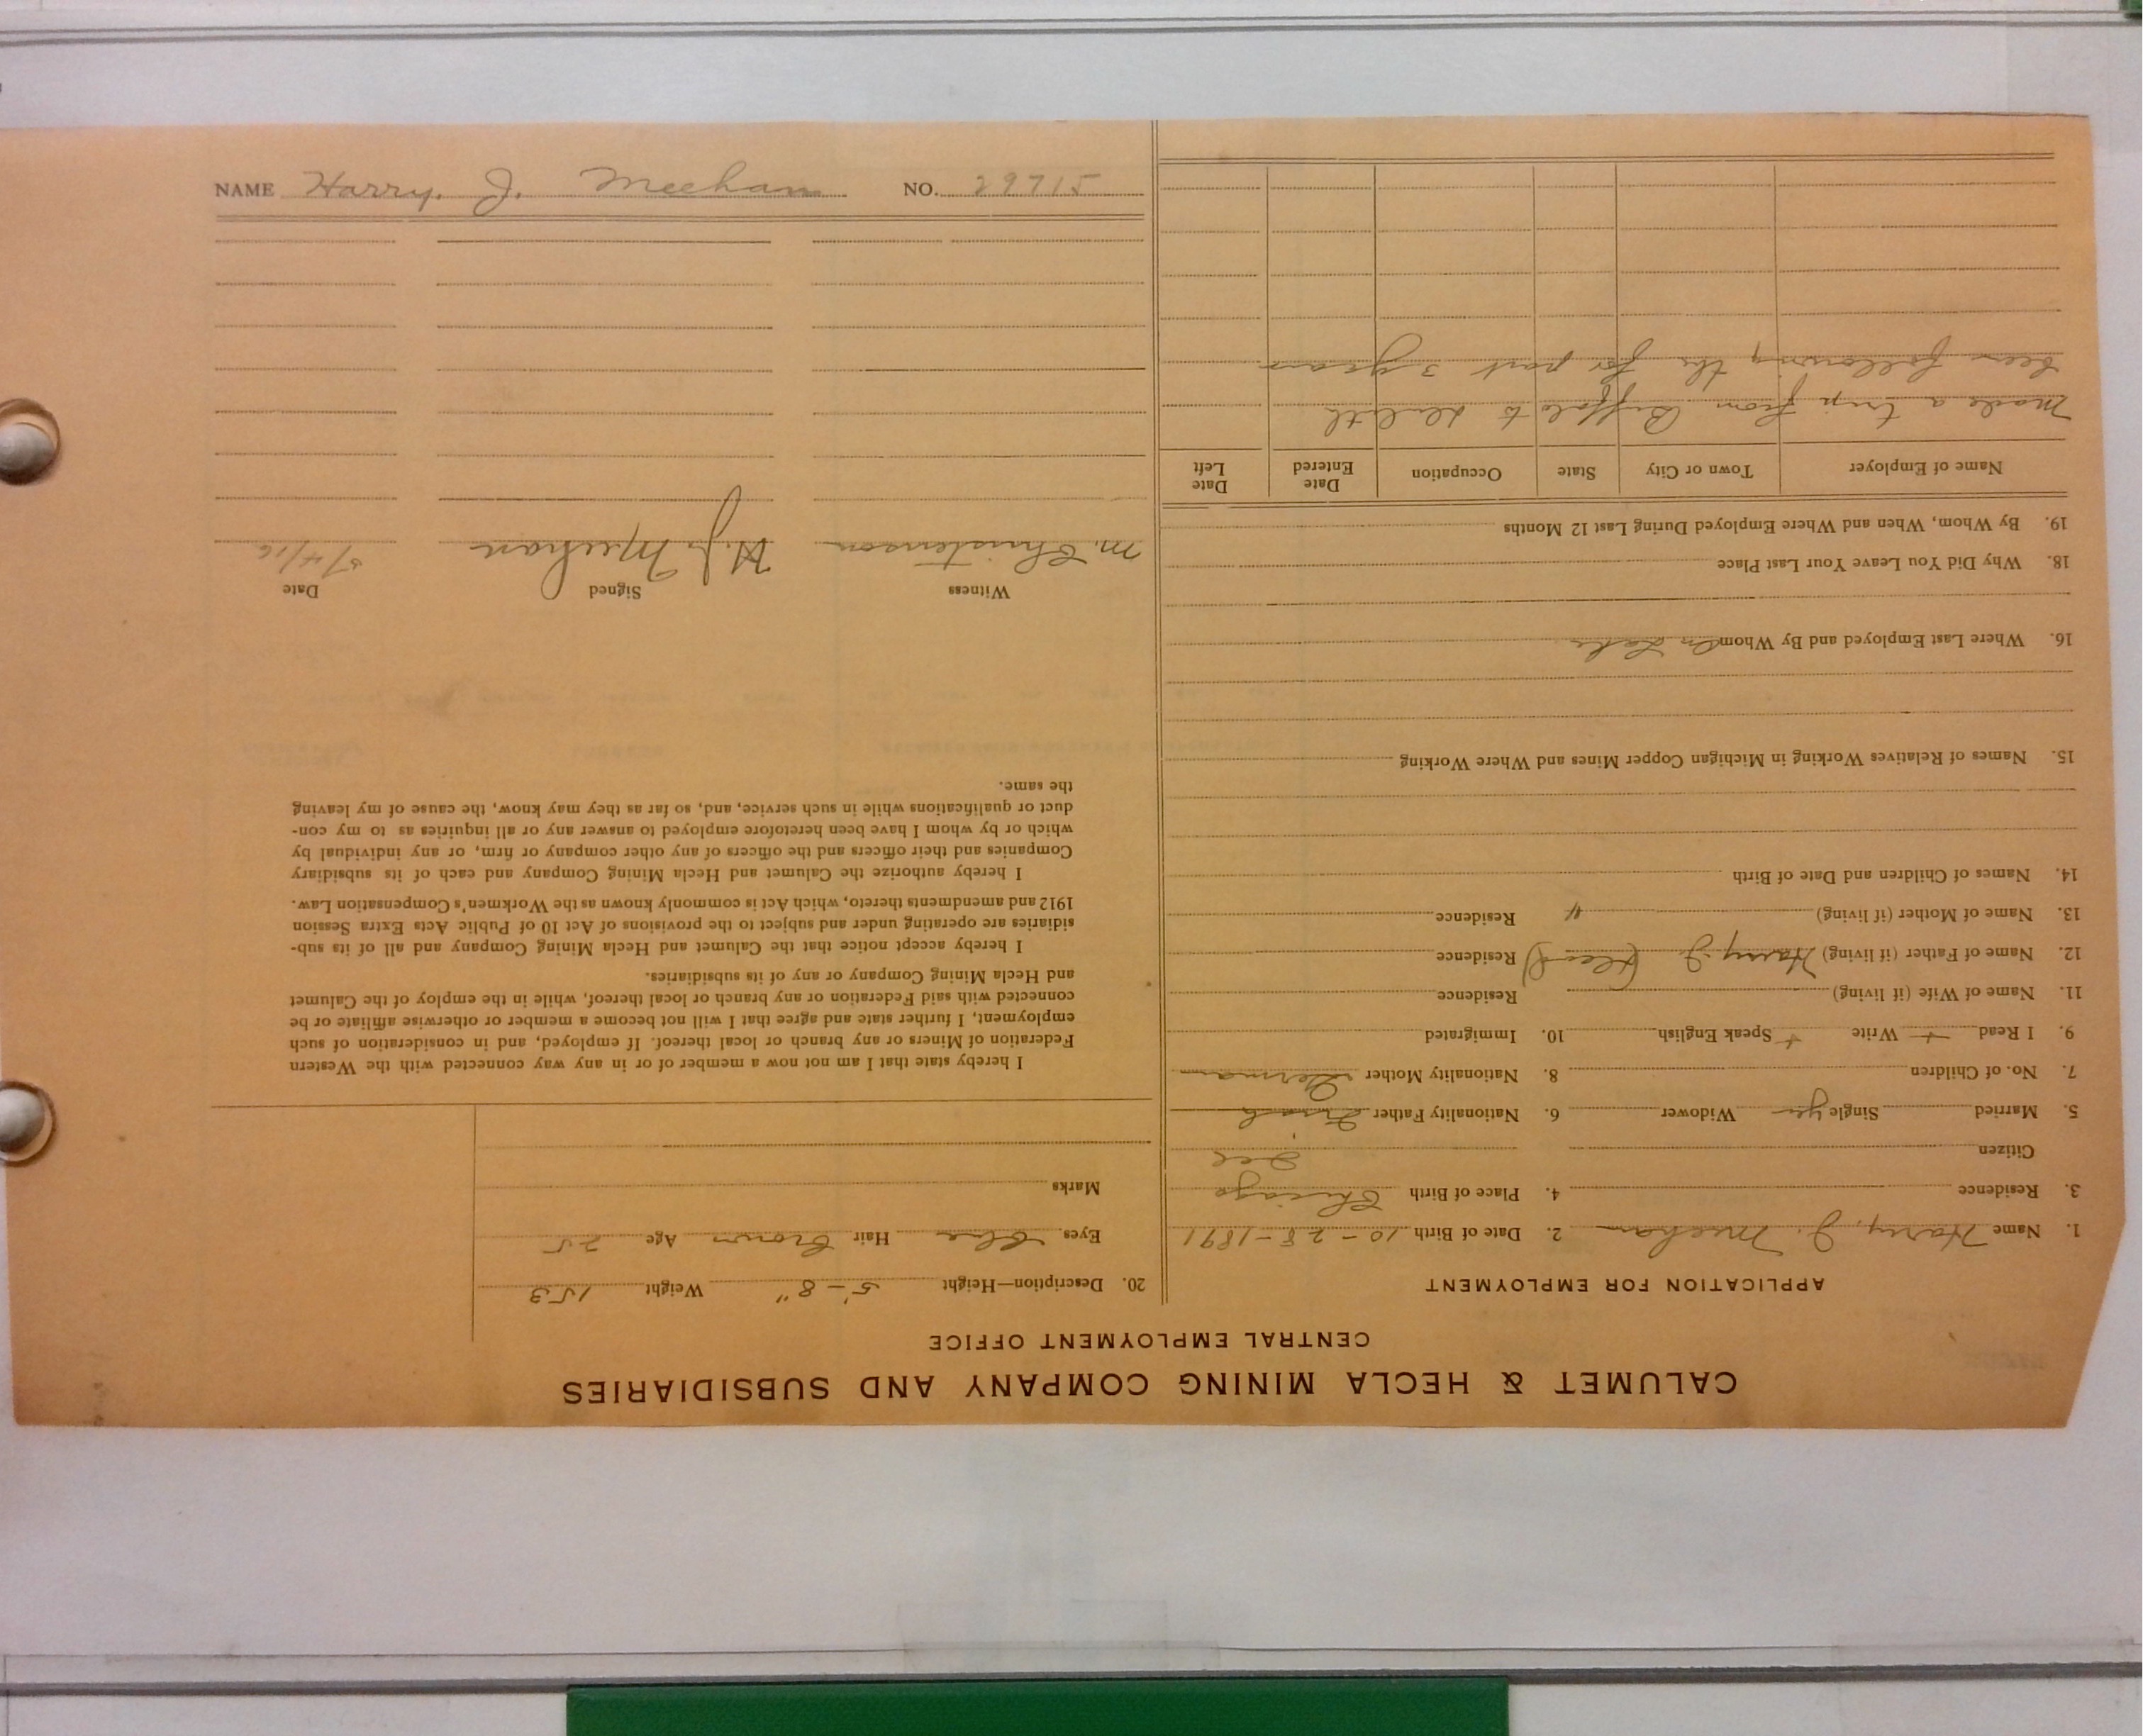 CALUMET & HECLA MINING COMPANY AND SUBSIDIARIES
CENTRAL EMPLOYMENT OFFICE
APPLICATION FOR EMPLOYMENT
1. Name Harry. J. Meehan 2. Date of Birth 10-28-1891
3. Residence 4. Place of Birth Chicago
Citizen Ill
5. Married Single yes Widower 6. Nationality Father Irish
7. No. of Children 8. Nationality Mother German
9. I Read Write + Speak English + 10. Immigrated
11. Name of Wife (if living) Residence
12. Name of Father (if living) Harry J. (Dead) Residence
13. Name of Mother (if living) " Residence
14. Names of Children and Date of Birth
15. Names of Relatives Working in Michigan Copper Mines and Where Working
16. Where Last Employed and By Whom On Lake
18. Why Did You Leave Your Last Place
19. By Whom, When and Where Employed During Last 12 Months
Name of Employer Town or City State Occupation Date Entered Date Left
Made a trip from Buffalo to Duluth
been following this for past 3 years
20. Description—Height 5'-8" Weight 153
Eyes Blue Hair Brown Age 25
Marks
I hereby state that I am not now a member of or in any way connected with the Western
Federation of Miners or any branch or local thereof. If employed, and in consideration of such
employment, I further state and agree that I will not become a member or otherwise affiliate or be
connected with said Federation or any branch or local thereof, while in the employ of the Calumet
and Hecla Mining Company or any of its subsidiaries.
I hereby accept notice that the Calumet and Hecla Mining Company and all of its sub-
sidiaries are operating under and subject to the provisions of Act 10 of Public Acts Extra Session
1912 and amendments thereto, which Act is commonly known as the Workmen's Compensation Law.
I hereby authorize the Calumet and Hecla Mining Company and each of its subsidiary
Companies and their officers and the officers of any other company or firm, or any individual by
which or by whom I have been heretofore employed to answer any or all inquiries as to my con-
duct or qualifications while in such service, and, so far as they may know, the cause of my leaving
the same.
Witness Signed Date
M. Christenson H. J. Meehan 5/4/16
NAME Harry. J. Meehan NO. 29715